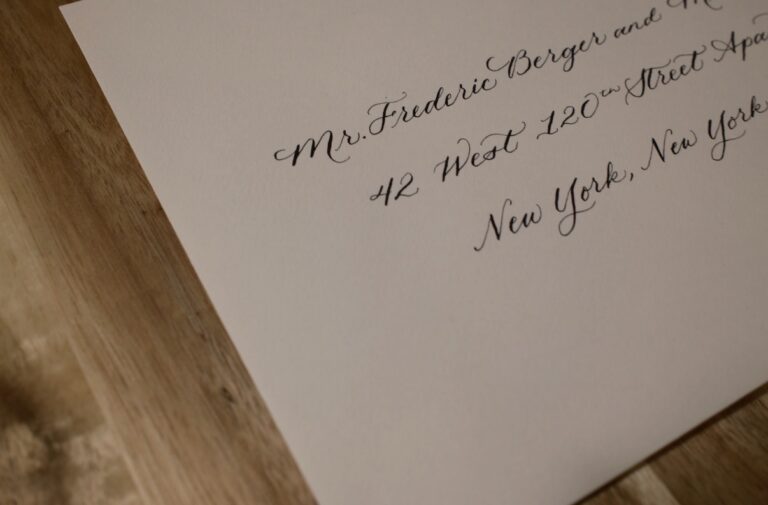 Mr. Frederic Berger and M
42 West 120th Street Apa
New York, New York